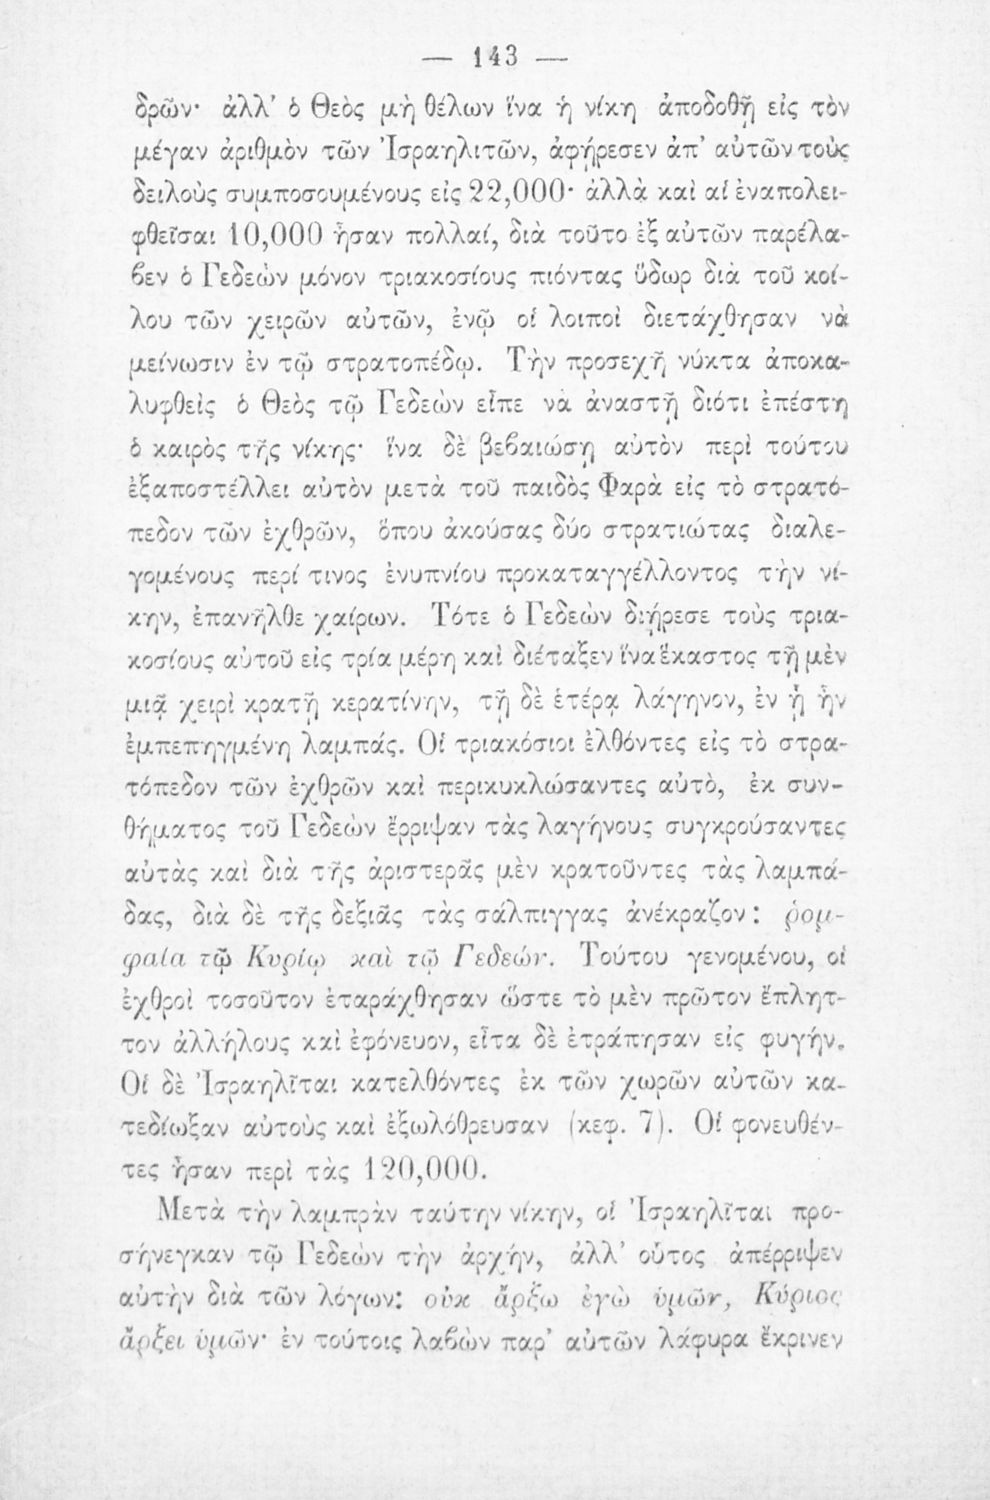 — 143 —
δρῶν· ἀλλ’ ὁ Θεὸς μὴ θέλων ἵνα ἡ νίκη ἀποδοθῇ εἰς τὸν
μέγαν ἀριθμὸν τῶν Ἰσραηλιτῶν, ἀφῄρεσεν ἀπ’ αὐτῶν τοὺς
δειλοὺς συμποσουμένους εἰς 22,000· ἀλλὰ καὶ αἱ ἐναπολει-
φθεῖσαι 10,000 ἦσαν πολλαί, διὰ τοῦτο ἐξ αὐτῶν παρέλα-
βεν ὁ Γεδεὼν μόνον τριακοσίους πιόντας ὕδωρ διὰ τοῦ κοί-
λου τῶν χειρῶν αὐτῶν, ἐνῷ οἱ λοιποὶ διετάχθησαν νὰ
μείνωσιν ἐν τῷ στρατοπέδῳ. Τὴν προσεχῆ νύκτα ἀποκα-
λυφθεὶς ὁ Θεὸς τῷ Γεδεὼν εἶπε νὰ ἀναστῇ διότι ἐπέστη
ὁ καιρὸς τῆς νίκης· ἵνα δὲ βεβαιώσῃ αὐτὸν περὶ τούτου
ἐξαποστέλλει αὐτὸν μετὰ τοῦ παιδὸς Φαρὰ εἰς τὸ στρατό-
πεδον τῶν ἐχθρῶν, ὅπου ἀκούσας δύο στρατιώτας διαλε-
γομένους περί τινος ἐνυπνίου προκαταγγέλλοντος τὴν νί-
κην, ἐπανῆλθε χαίρων. Τότε ὁ Γεδεὼν διῄρεσε τοὺς τρια-
κοσίους αὐτοῦ εἰς τρία μέρη καὶ διέταξεν ἵνα ἕκαστος τῇ μὲν
μιᾷ χειρὶ κρατῇ κερατίνην, τῇ δὲ ἑτέρᾳ λάγηνον, ἐν ᾗ ἦν
ἐμπεπηγμένη λαμπάς. Οἱ τριακόσιοι ἐλθόντες εἰς τὸ στρα-
τόπεδον τῶν ἐχθρῶν καὶ περικυκλώσαντες αὐτὸ, ἐκ συν-
θήματος τοῦ Γεδεὼν ἔρριψαν τὰς λαγήνους συγκρούσαντες
αὐτὰς καὶ διὰ τῆς ἀριστερᾶς μὲν κρατοῦντες τὰς λαμπά-
δας, διὰ δὲ τῆς δεξιᾶς τὰς σάλπιγγας ἀνέκραζον: ῥομ-
φαία τῷ Κυρίῳ καὶ τῷ Γεδεών. Τούτου γενομένου, οἱ
ἐχθροὶ τοσοῦτον ἐταράχθησαν ὥστε τὸ μὲν πρῶτον ἔπλητ-
τον ἀλλήλους καὶ ἐφόνευον, εἶτα δὲ ἐτράπησαν εἰς φυγήν.
Οἱ δὲ Ἰσραηλῖται κατελθόντες ἐκ τῶν χωρῶν αὐτῶν κα-
τεδίωξαν αὐτοὺς καὶ ἐξωλόθρευσαν (κεφ. 7). Οἱ φονευθέν-
τες ἦσαν περὶ τὰς 120,000.
Μετὰ τὴν λαμπρὰν ταύτην νίκην, οἱ Ἰσραηλῖται προ-
σήνεγκαν τῷ Γεδεὼν τὴν ἀρχήν, ἀλλ’ οὗτος ἀπέρριψεν
αὐτὴν διὰ τῶν λόγων: οὐκ ἄρξω ἐγὼ ὑμῶν, Κύριος
ἄρξει ὑμῶν· ἐν τούτοις λαβὼν παρ’ αὐτῶν λάφυρα ἔκρινεν